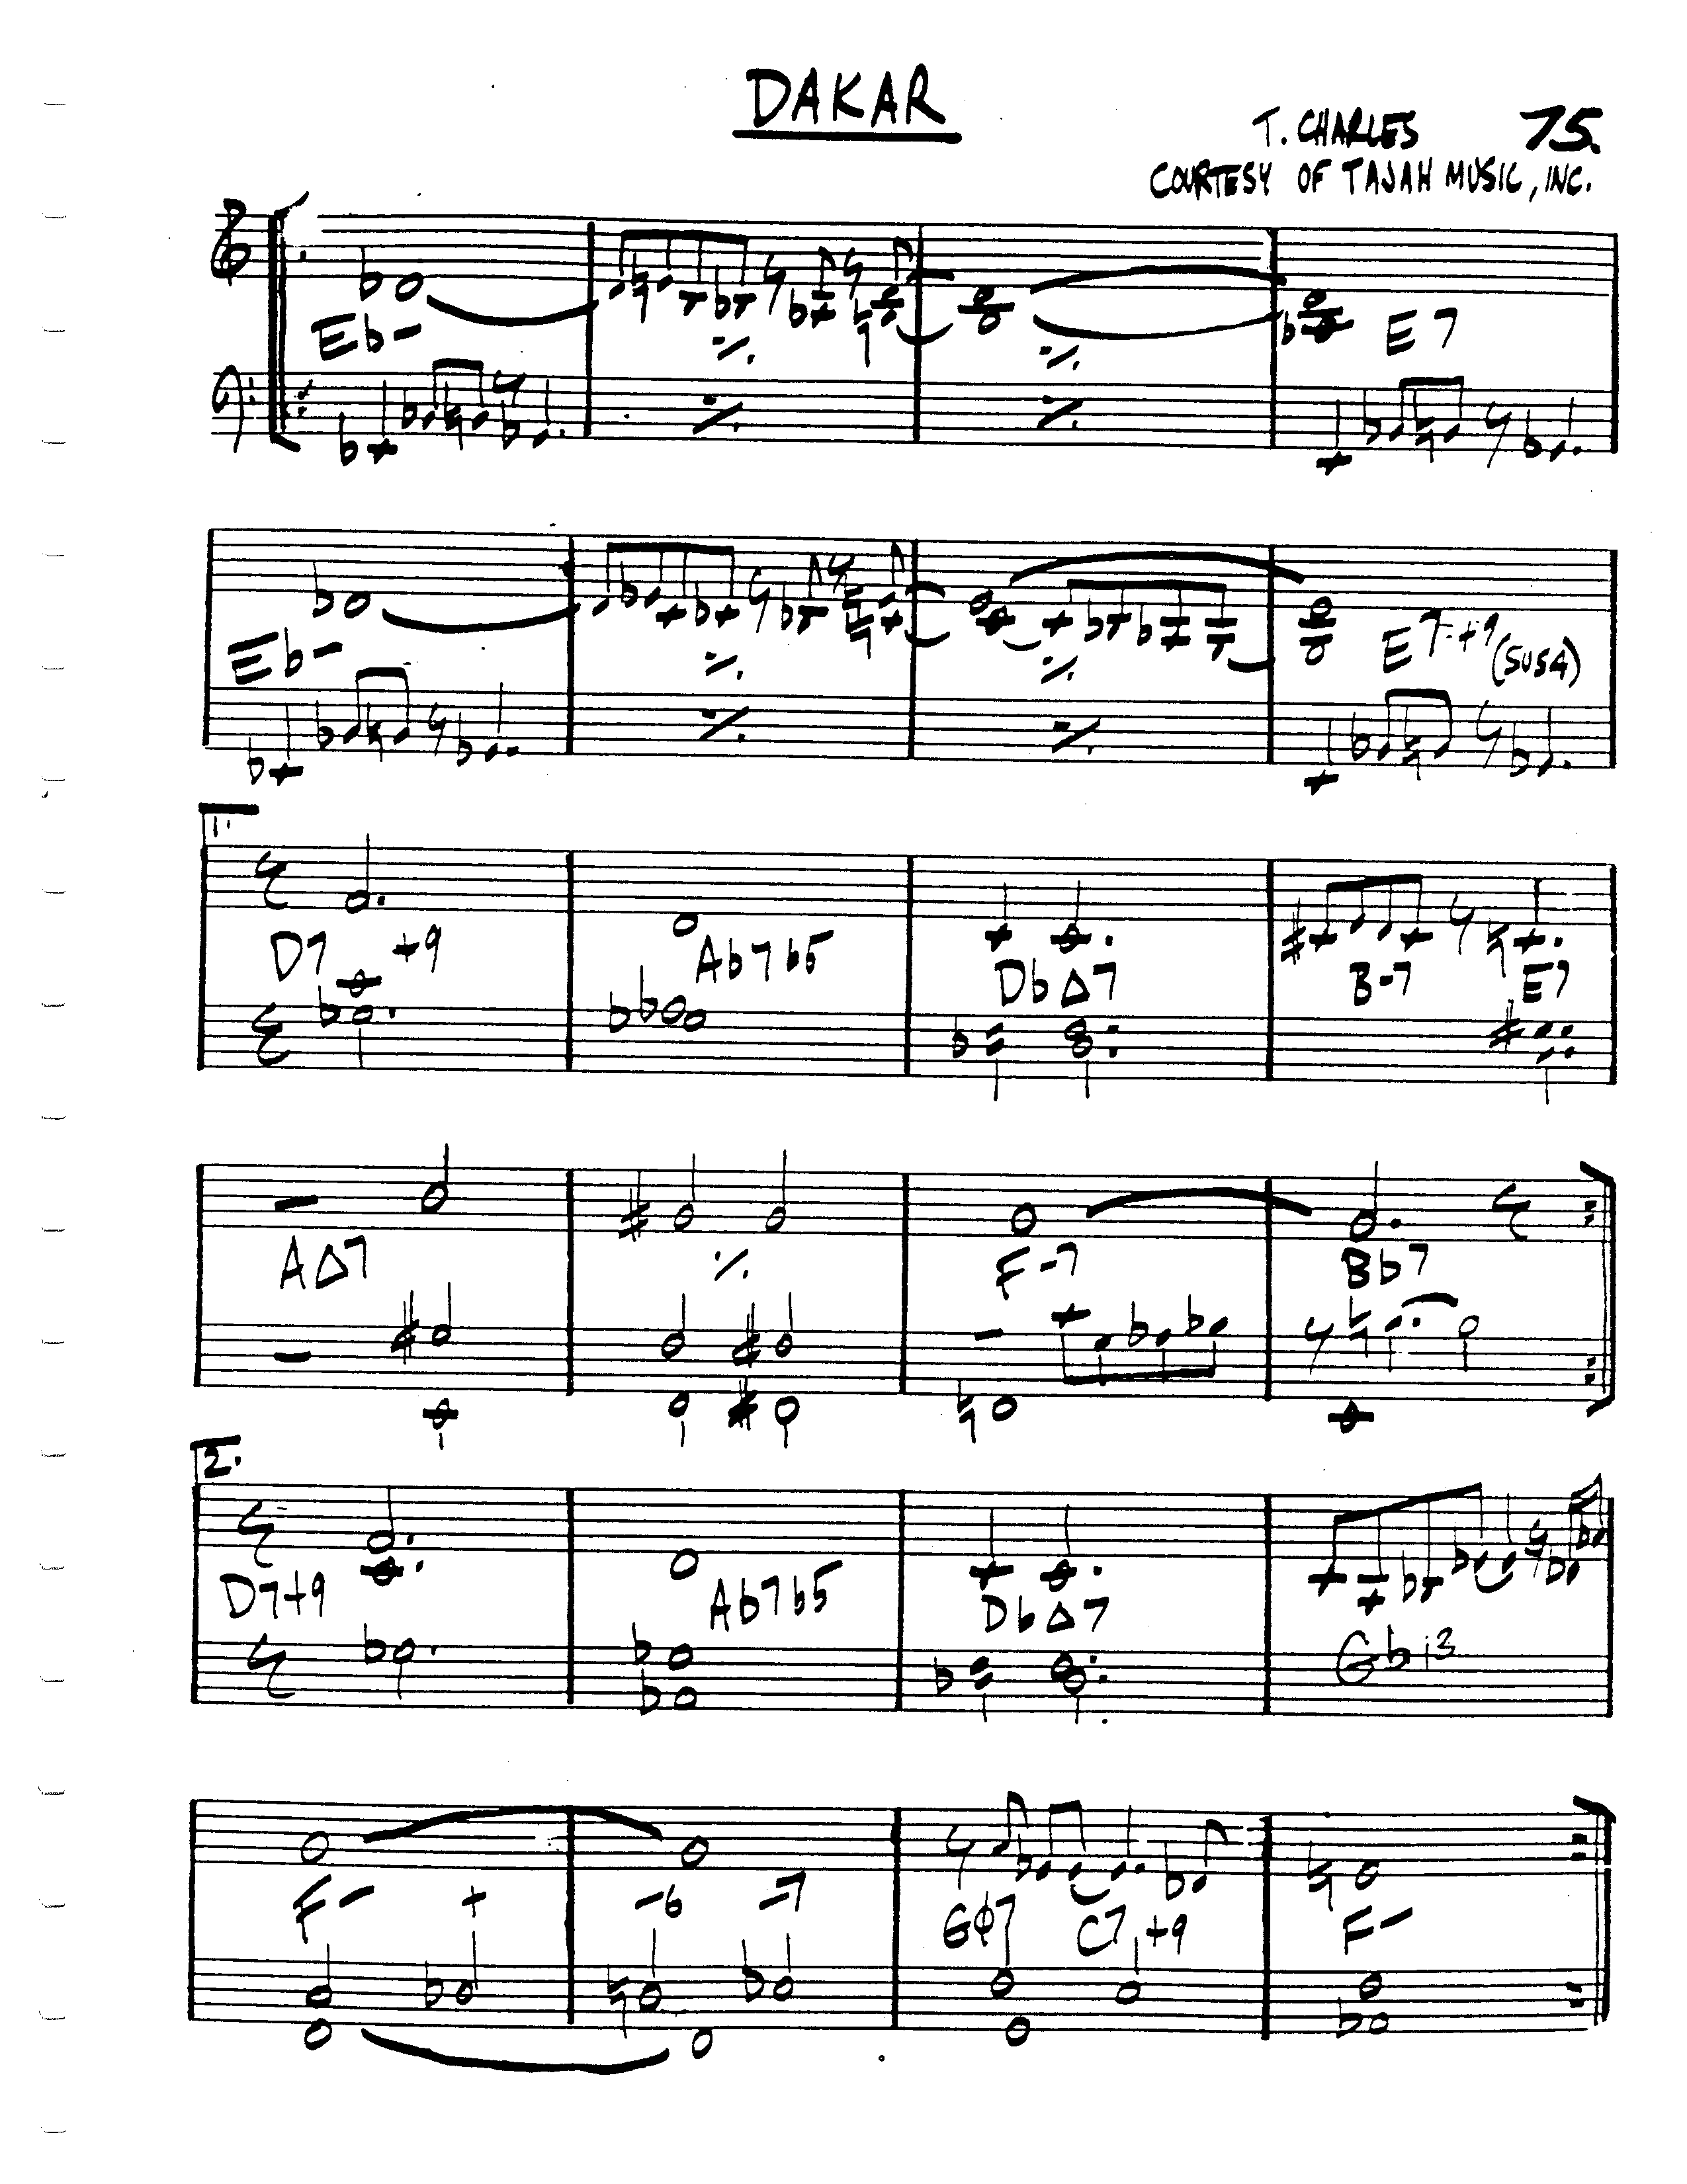 DAKAR
T. CHARLES 75.
COURTESY OF TAJAH MUSIC, INC.
Eb- E7
Eb- E7+9 (SUS4)
1.
D7 +9 Ab7b5 DbΔ7 B-7 E7
AΔ7 F-7 Bb7
2.
D7+9 Ab7b5 DbΔ7 Gb13
F- + -6 -7 Gø7 C7+9 F-